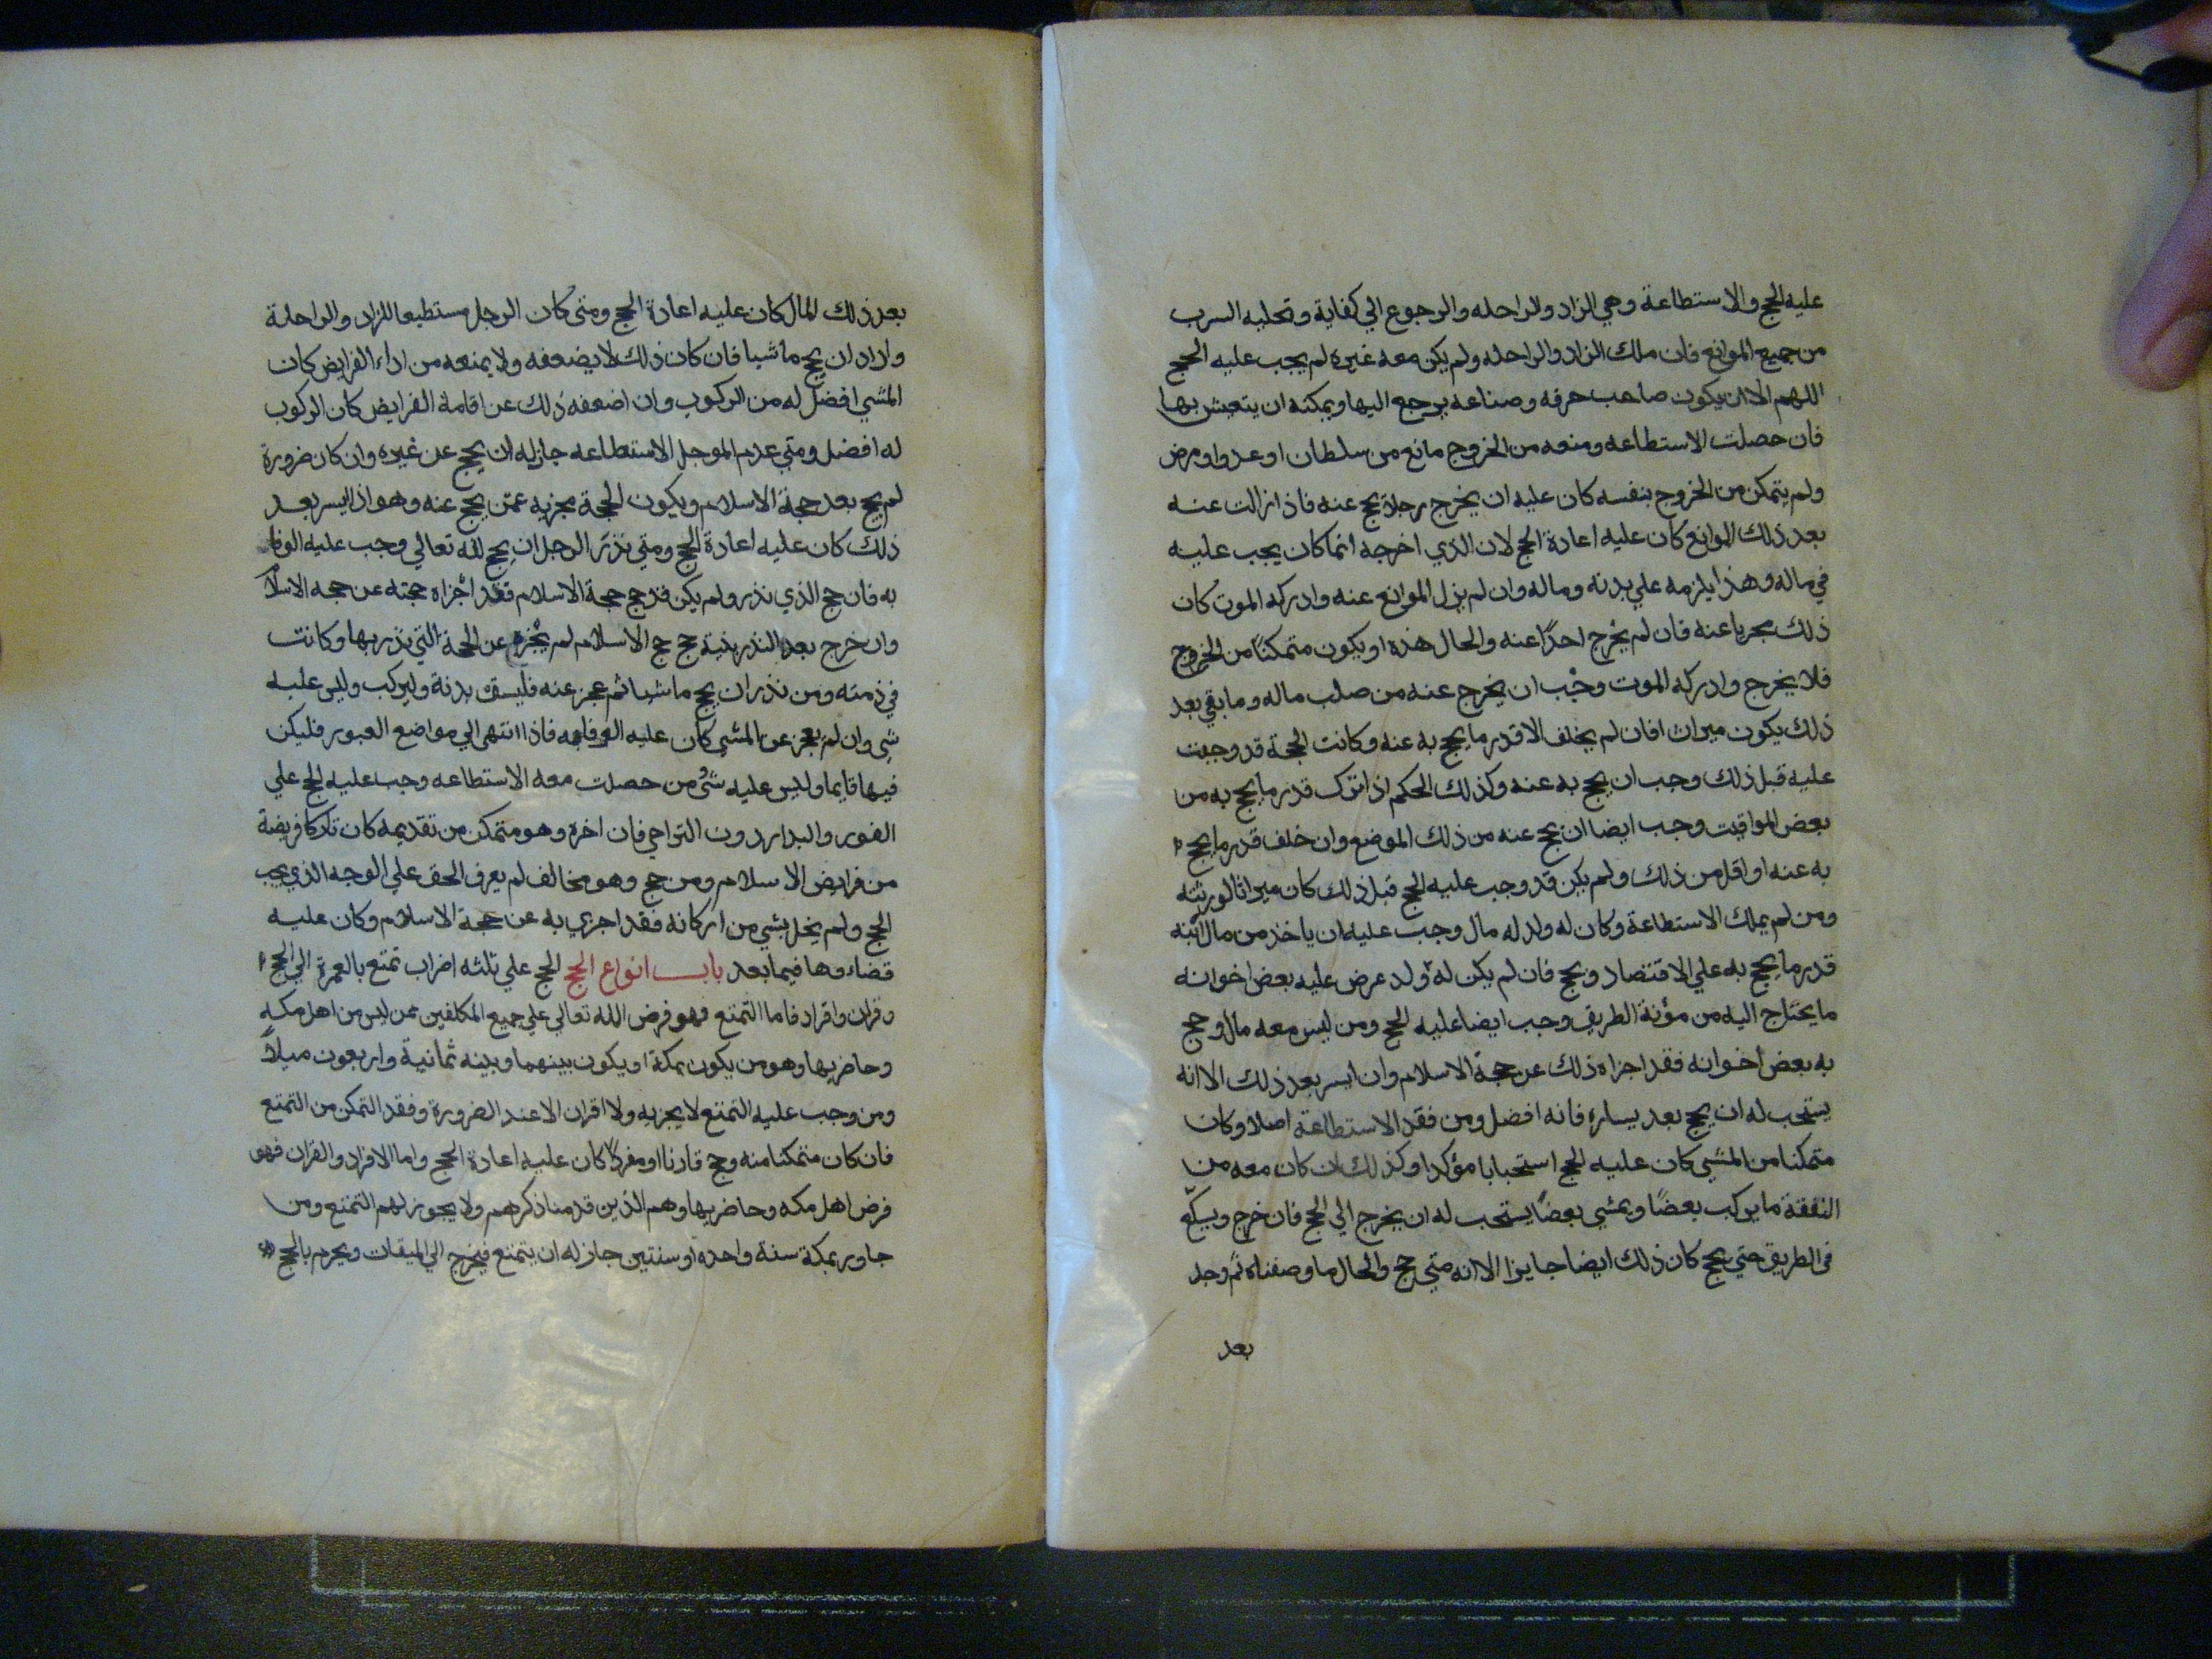 عليه الحج والاستطاعة وهي الزاد والراحله والرجوع الي كفاية وتخليه السرب
من جميع الموانع فان ملك الزاد والراحله ولم يكن معه غيره لم يجب عليه الحج
اللهم الا ان يكون صاحب حرفه وصناعه يرجع اليها ويمكنه ان يتعيش بها
فان حصلت الاستطاعه ومنعه من الخروج مانع من سلطان او عدو او مرض
ولم يتمكن من الخروج بنفسه كان عليه ان يخرج رجلا يحج عنه فاذا زالت عنه
بعد ذلك الموانع كان عليه اعادة الحج لان الذي اخرجه انما كان يجب عليه
في ماله وهذا يلزمه علي بدنه وماله وان لم يزل الموانع عنه وادركه الموت كان
ذلك مجزيا عنه فان لم يخرج احدًا عنه والحال هذه او يكون متمكنًا من الخروج
فلا يخرج وادركه الموت وجب ان يخرج عنه من صلب ماله وما بقي بعد
ذلك يكون ميراثا فان لم يخلف الا قدر ما يحج به عنه وكانت الحجة قد وجبت
عليه قبل ذلك وجب ان يحج به عنه وكذلك الحكم اذا ترك قدر ما يحج به من
بعض المواقيت وجب ايضا ان يحج عنه من ذلك الموضع وان خلف قدر ما يحج
به عنه او اقل من ذلك ولم يكن قد وجب عليه الحج قبل ذلك كان ميراثا لورثته
ومن لم يملك الاستطاعة وكان له ولد له مال وجب عليه ان ياخذ من مال ابنه
قدر ما يحج به علي الاقتصاد ويحج فان لم يكن له ولد عرض عليه بعض اخوانه
ما يحتاج اليه من مؤنة الطريق وجب ايضا عليه الحج ومن ليس معه مال وحج
به بعض اخوانه فقد اجزاه ذلك عن حجة الاسلام وان ايسر بعد ذلك الا انه
يستحب له ان يحج بعد يساره فانه افضل ومن فقد الاستطاعة اصلا وكان
متمكنا من المشي كان عليه الحج استحبابا مؤكدا وكذلك ان كان معه من
النفقة ما يركب بعضًا ويمشي بعضًا يستحب له ان يخرج الي الحج فان خرج
في الطريق حتي يحج كان ذلك ايضا جايزا الا انه متي حج والحال ما وصفناه ثم وجد
بعد
بعد ذلك المال كان عليه اعادة الحج ومتى كان الرجل مستطيعا للزاد والراحلة
واراد ان يحج ماشيا فان كان ذلك لا يضعفه ولا يمنعه من اداء الفرايض كان
المشي افضل له من الركوب وان اضعفه ذلك عن اقامة الفرايض كان الركوب
له افضل ومتي عدم الموجل الاستطاعه جاز له ان يحج عن غيره وان كان ضرورة
لم يحج بعد حجة الاسلام ويكون الحجة مجزيه عمّن يحج عنه وهو اذا ايسر بعد
ذلك كان عليه اعادة الحج ومتي نذر الرجل ان يحج لله تعالي وجب عليه الوفا
به فان حج الذي نذر ولم يكن قد حج حجة الاسلام فقد اجزاه حجته عن حجه الاسلام
وان خرج بعد النذر بنية حج حج الاسلام لم يُجزه عن الحجة التي نذر بها وكانت
في ذمته ومن نذر ان يحج ماشيا ثم عجز عنه فليسق بدنة وليركب وليس عليه
شي وان لم يعجز عن المشي كان عليه الوفا به فاذا انتهى الي مواضع العبور فليكن
فيها قايما وليس عليه شئ ومن حصلت معه الاستطاعه وجب عليه الحج علي
الفور والبدار دون التراخي فان اخره وهو متمكن من تقديمه كان تاركا فريضة
من فرايض الاسلام ومن حج وهو مخالف لم يعرف الحق علي الوجه الذي يجب
الحج ولم يخل بشي من اركانه فقد اجزي به عن حجة الاسلام وكان عليه
قضاءها فيما بعد باب انواع الحج الحج علي ثلثه اضراب تمتع بالعمرة الي الحج
وقران وافراد فاما التمتع فهو فرض الله تعالي علي جميع المكلفين ممن ليس من اهل مكه
وحاضريها وهو من يكون بمكة او يكون بينهما وبينه ثمانية واربعون ميلاً
ومن وجب عليه التمتع لا يجزيه ولا اقران الا عند الضرورة وفقد التمكن من التمتع
فان كان متمكنا منه وحج قارنا او مفردًا كان عليه اعادة الحج واما الافراد والقران فهو
فرض اهل مكه وحاضريها وهم الذين قدمنا ذكرهم ولا يجوز لهم التمتع ومن
جاور بمكة سنة واحده او سنتين جاز له ان يتمتع فيخرج الي الميقات ويحرم بالحج